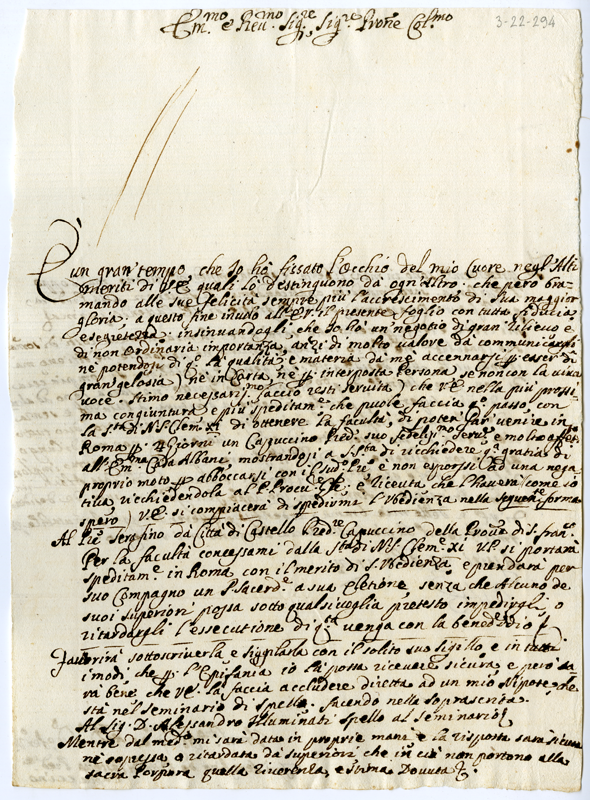 Em.mo e Rev.mo Sig.re Sig.re Prone Col.mo
3-22-294
È un gran tempo, che Io hò fissato l'occhio del mio Cuore negl'Alti
meriti di V.E. quali lo destinguono da ogn'altro: che però bra-
mando alle sue felicità sempre più l'accrescimento di Sua maggior
gloria, a questo fine invio all'E.V. il presente foglio con tutta fiducia
e segretezza insinuandogli, che Io hò un negotio di gran rilievo e
di non ordinaria importanza, anzi di molto valore da communicargli
nè potendosi di q.o la qualità e materia da me accennarsi p. esser di
gran gelosia) nè in Carta, nè p. interposta Persona, se non con la viva
voce. Stimo necessariss.mo (faccio resti servita) che V.E. nella più prossi-
ma congiuntura, e più speditam.e che puole, faccia q.o passo, con
la S.tà di N.S. Clem. XI di ottenere la facultà, di poter far venire in
Roma p. giorni un Capuccino Pred.re suo fedeliss.mo Serv.e e molto affett.
all'Em.ma Casa Albani, mostrandosi a S.S.tà di richiedere q.a gratia di
proprio moto p. abboccarsi con il Sud.o P.re e non esporsi ad una nega-
tiva richiedendola al P. Procu.re e ricevuta che l'haverà (come io
spero) V.E. si compiacerà di spedirmi l'Ubedienza nella seguente forma
Al P.re Serafino da Città di Castello Pred.re Capuccino della Prov.a di S. Fran.co
Per la facultà concessami dalla S.tà di N.S. Clem.e XI V.P. si porterà
speditam.e in Roma con il merito di S. Ubedienza, e prenderà per
suo Compagno un P. Sacerd.e a sua elezione, senza che Alcuno de
suoi superiori possa sotto qualsivoglia pretesto impedirgli, o
ritardargli l'essecutione di q.ta venga con la bened.ne di
Favorirà sottoscriverla e sigillarla con il solito suo sigillo, e in tutti
i modi, che p. l'Epifania io la possa ricevere sicura, e però sa-
rà bene che V.E. la faccia accludere diretta ad un mio Nipote che
stà nel seminario di Spello, facendo nella soprascritta.
Al Sig. D. Alessandro Illuminati Spello al seminario
Mentre dal med.o mi sarà data in proprie mani e la risposta sarà sicura
nè soppressa, o ritardata da superiori che in ciò non portono alla
sacra Porpora quella riverenza, e stima Dovuta